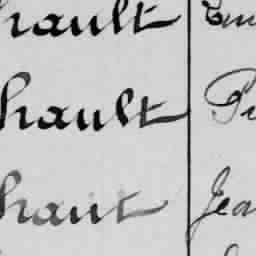 hault
hault Pi
haut Jea